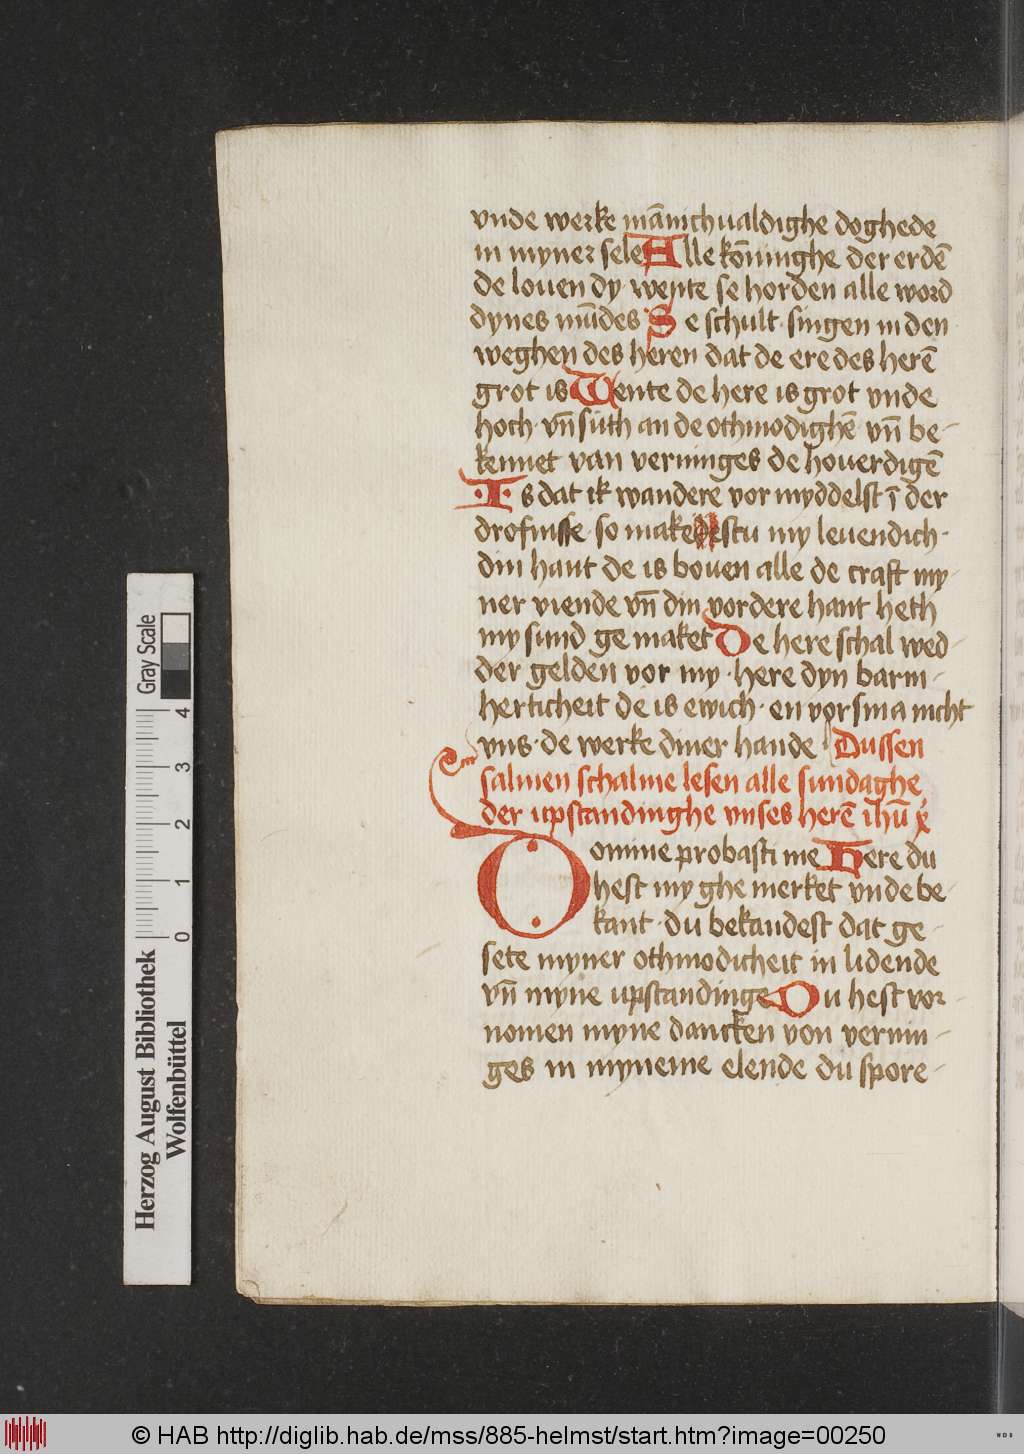 vnde werke mānichualdighe doghede
in myner sele Alle kōninghe der erdē
de louen dy · wente se horden alle word
dynes mūdes Se schult singen in den
weghen des heren dat de ere des herē
grot is Wente de here is grot vnde
hoch · vn̄ suth an de othmodighē vn̄ be-
kennet van verninges de houerdigē
Is dat ik wandere vor myddelst ī der
drofnisse · so makestu my leuendich ·
din hant de is bouen alle de craft my-
ner viende vn̄ din vordere hant heth
my sund ge maket De here schal wed-
der gelden vor my · here dyn barm-
herticheit de is ewich · en vor sma nicht
vns · de werke diner hande · Dussen
salmen schalme lesen alle sundaghe
der upstandinghe vnses herē ihū x̄
Domine probasti me Here du
hest my ghe merket vnde be-
kant · du bekandest dat ge-
sete myner othmodicheit in lidende
vn̄ myne upstandinge Du hest vor-
nomen myne dancken von vernin-
ges in myneme elende du spore-
Herzog August Bibliothek
Wolfenbüttel
Gray Scale
0 1 2 3 4
© HAB http://diglib.hab.de/mss/885-helmst/start.htm?image=00250